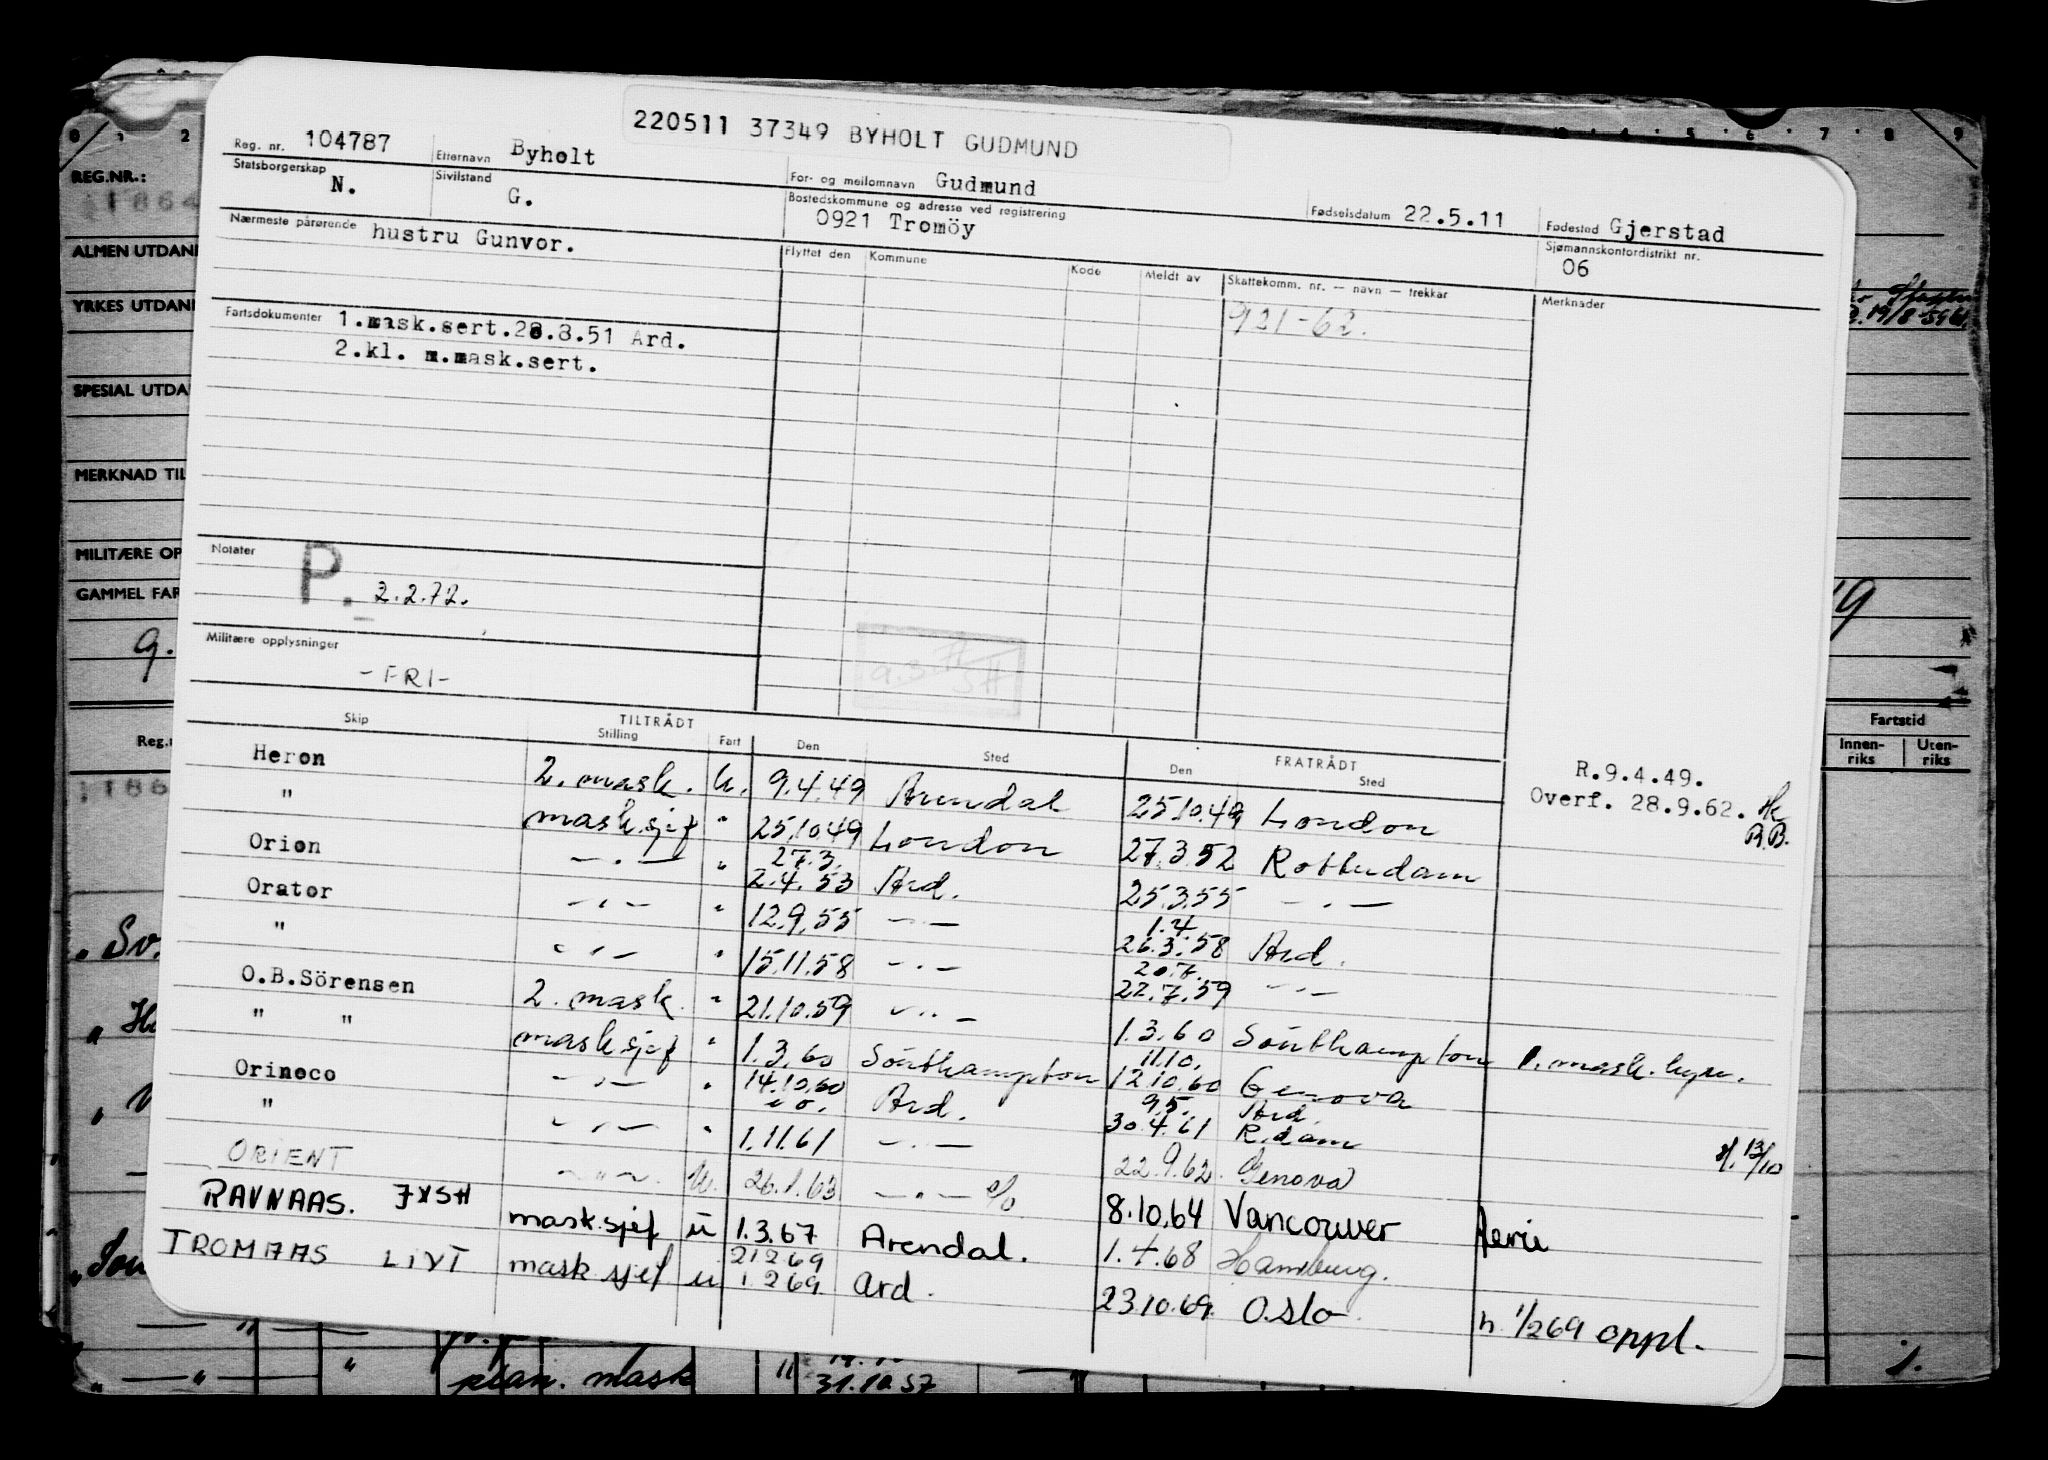 220511 37349 BYHOLT GUDMUND
Reg. nr. 104787 Etternavn Byholt For- og mellomnavn Gudmund Fødselsdatum 22.5.11 Fødested Gjerstad
Statsborgerskap N. Sivilstand G. Bostedskommune og adresse ved registrering 0921 Tromöy Sjømannskontordistrikt nr. 06
Nærmeste pårørende hustru Gunvor.
Flyttet den Kommune Kode Meldt av Skattekomm. nr. — navn — trekkar Merknader
921-62.
Fartsdokumenter 1.mask.sert.28.8.51 Ard.
2.kl. m.mask.sert.
Notater P. 2.2.72.
Militære opplysninger
-FRI-
TILTRÅDT FRATRÅDT
Skip Stilling Fart Den Sted Den Sted
R.9.4.49.
Overf. 28.9.62. Hk
B.B.
Heron 2. mask. u. 9.4.49 Arendal 25.10.49 London
" mask.sjef " 25.10.49 London 27.3.52 Rotterdam
27.3.
Orion — . — " 2.4.53 Ard. 25.3.55 — . —
1.4
Orator — . — " 12.9.55 — . — 26.3.58 Ard.
20.7.
" — . — " 15.11.58 — . — 22.7.59 — . —
O.B.Sörensen 2. mask. " 21.10.59 — . — 1.3.60 Southampton 1. mask. hyre.
11.10.
" " mask.sjef " 1.3.60 Southampton 12.10.60 Genova
14.10.60 9.5. Ard.
Orinoco — . — " Ard. 30.4.61 R.dam
" — . — " 1.11.61 — . — 22.9.62. Genova
ORIENT — " — u. 26.1.63 — . — 8.10.64 Vancouver ferie
RAVNAAS. JXSH mask.sjef u 1.3.67 Arendal. 1.4.68 Hamburg.
21269
TROMAAS LIVT mask sjef u 1.269 Ard. 23.10.69. Oslo h 1/269 oppl.
0 1 2 3 4 5 6 7 8 9
REG.NR.:
ALMEN UTDAN
YRKES UTDAN
19/8-59
SPESIAL UTDA
MERKNAD TIL
MILITÆRE OP
GAMMEL FAR
9.
Fartstid
Reg.
Innen-
riks
Uten-
riks
plan. mask 11 31.10.57
1.